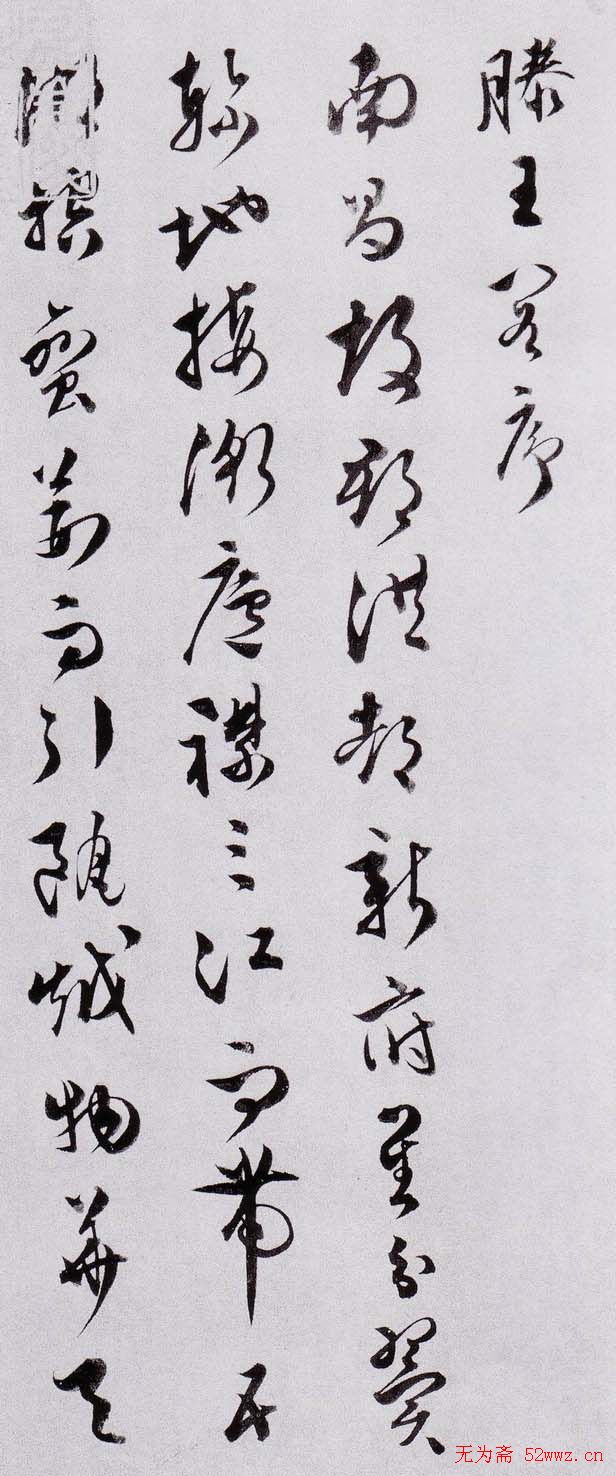 滕王閣序
南昌故郡洪都新府星分翼
軫地接衡廬襟三江而帶五
湖控蠻荊而引甌越物華天
无为斋 52wwz.cn